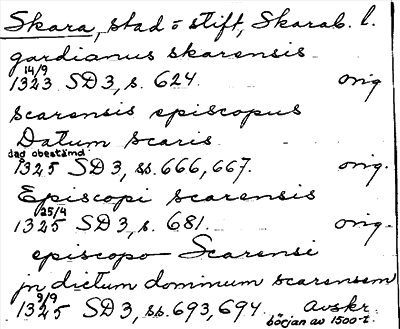 Skara, stad o stift, Skarab. l.
gardianus skarensis
14/9
1323 SD 3, s. 624. orig
scarensis episcopus
Datum scaris
dag obestämd
1325 SD 3, ss. 666, 667. orig.
Episcopi scarensis
25/4
1325 SD 3, s. 681. orig.
episcopo Scarensi
jn dictum dominum scarensem
9/9
1325 SD 3, ss. 693, 694. Avskr.
början av 1500-t.